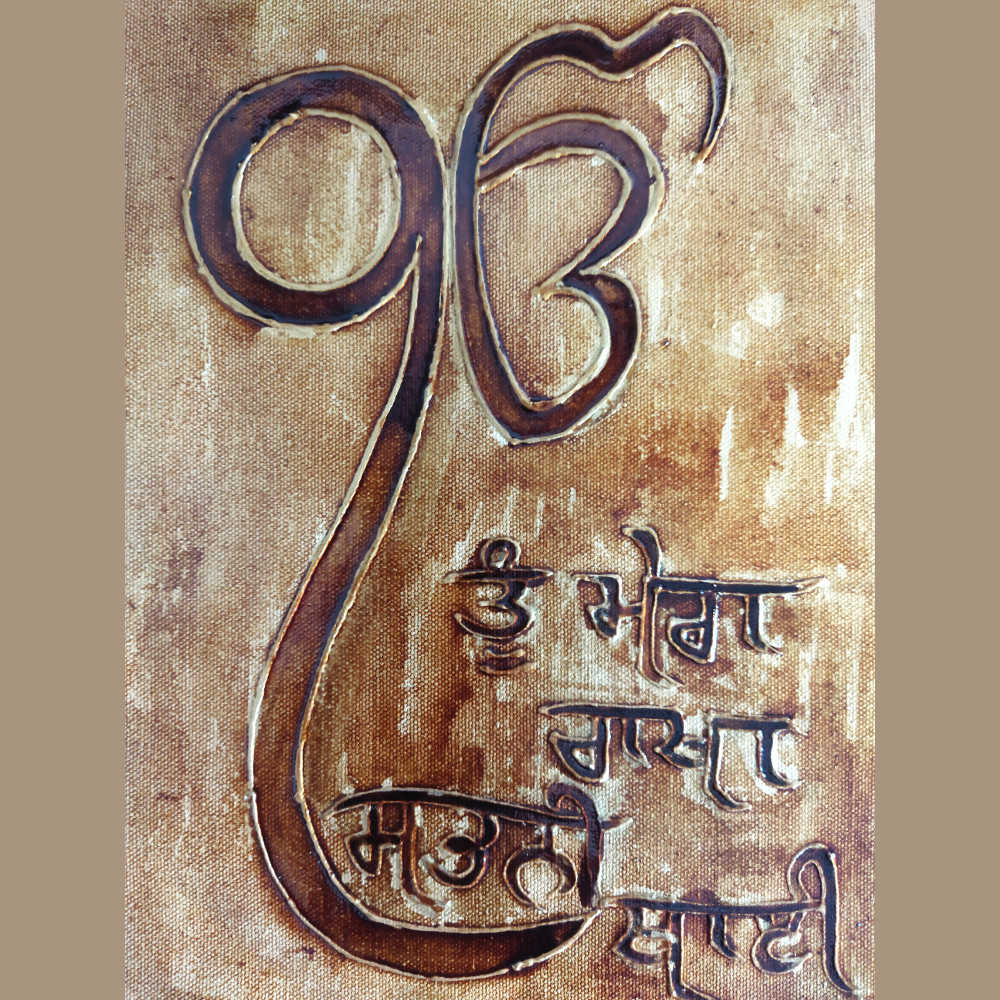 ੴ
ਤੂੰ ਮੇਰਾ
ਰਾਖਾ
ਸਭਨੀ
ਥਾਈ